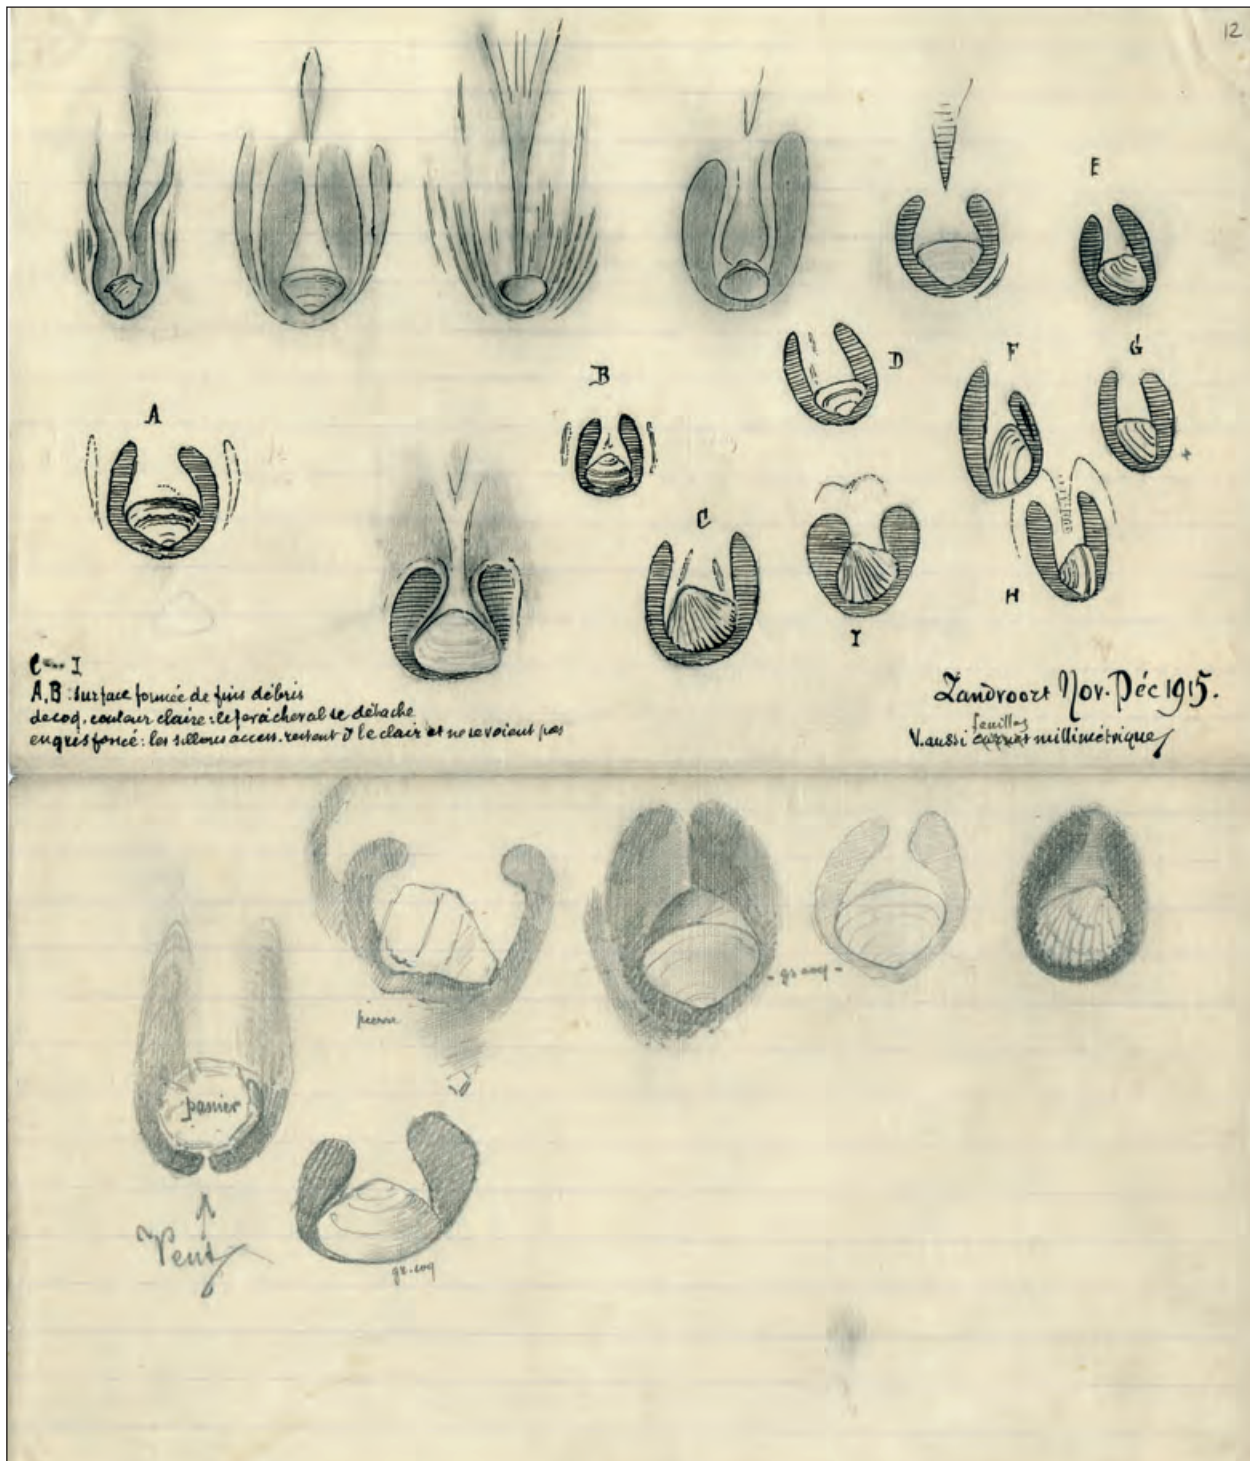 12
E
D
F
G
B
A
C
H
I
C--- I
A, B : surface formée de fins débris
de coq. couleur claire : le fer à cheval se détache
en gris foncé : les sillons access. restent d le clair et ne se voient pas
Zandvoort Nov.-Déc 1915.
feuilles
V. aussi carnet millimétrique
pierre
- gr coq -
panier
Vent
gr. coq